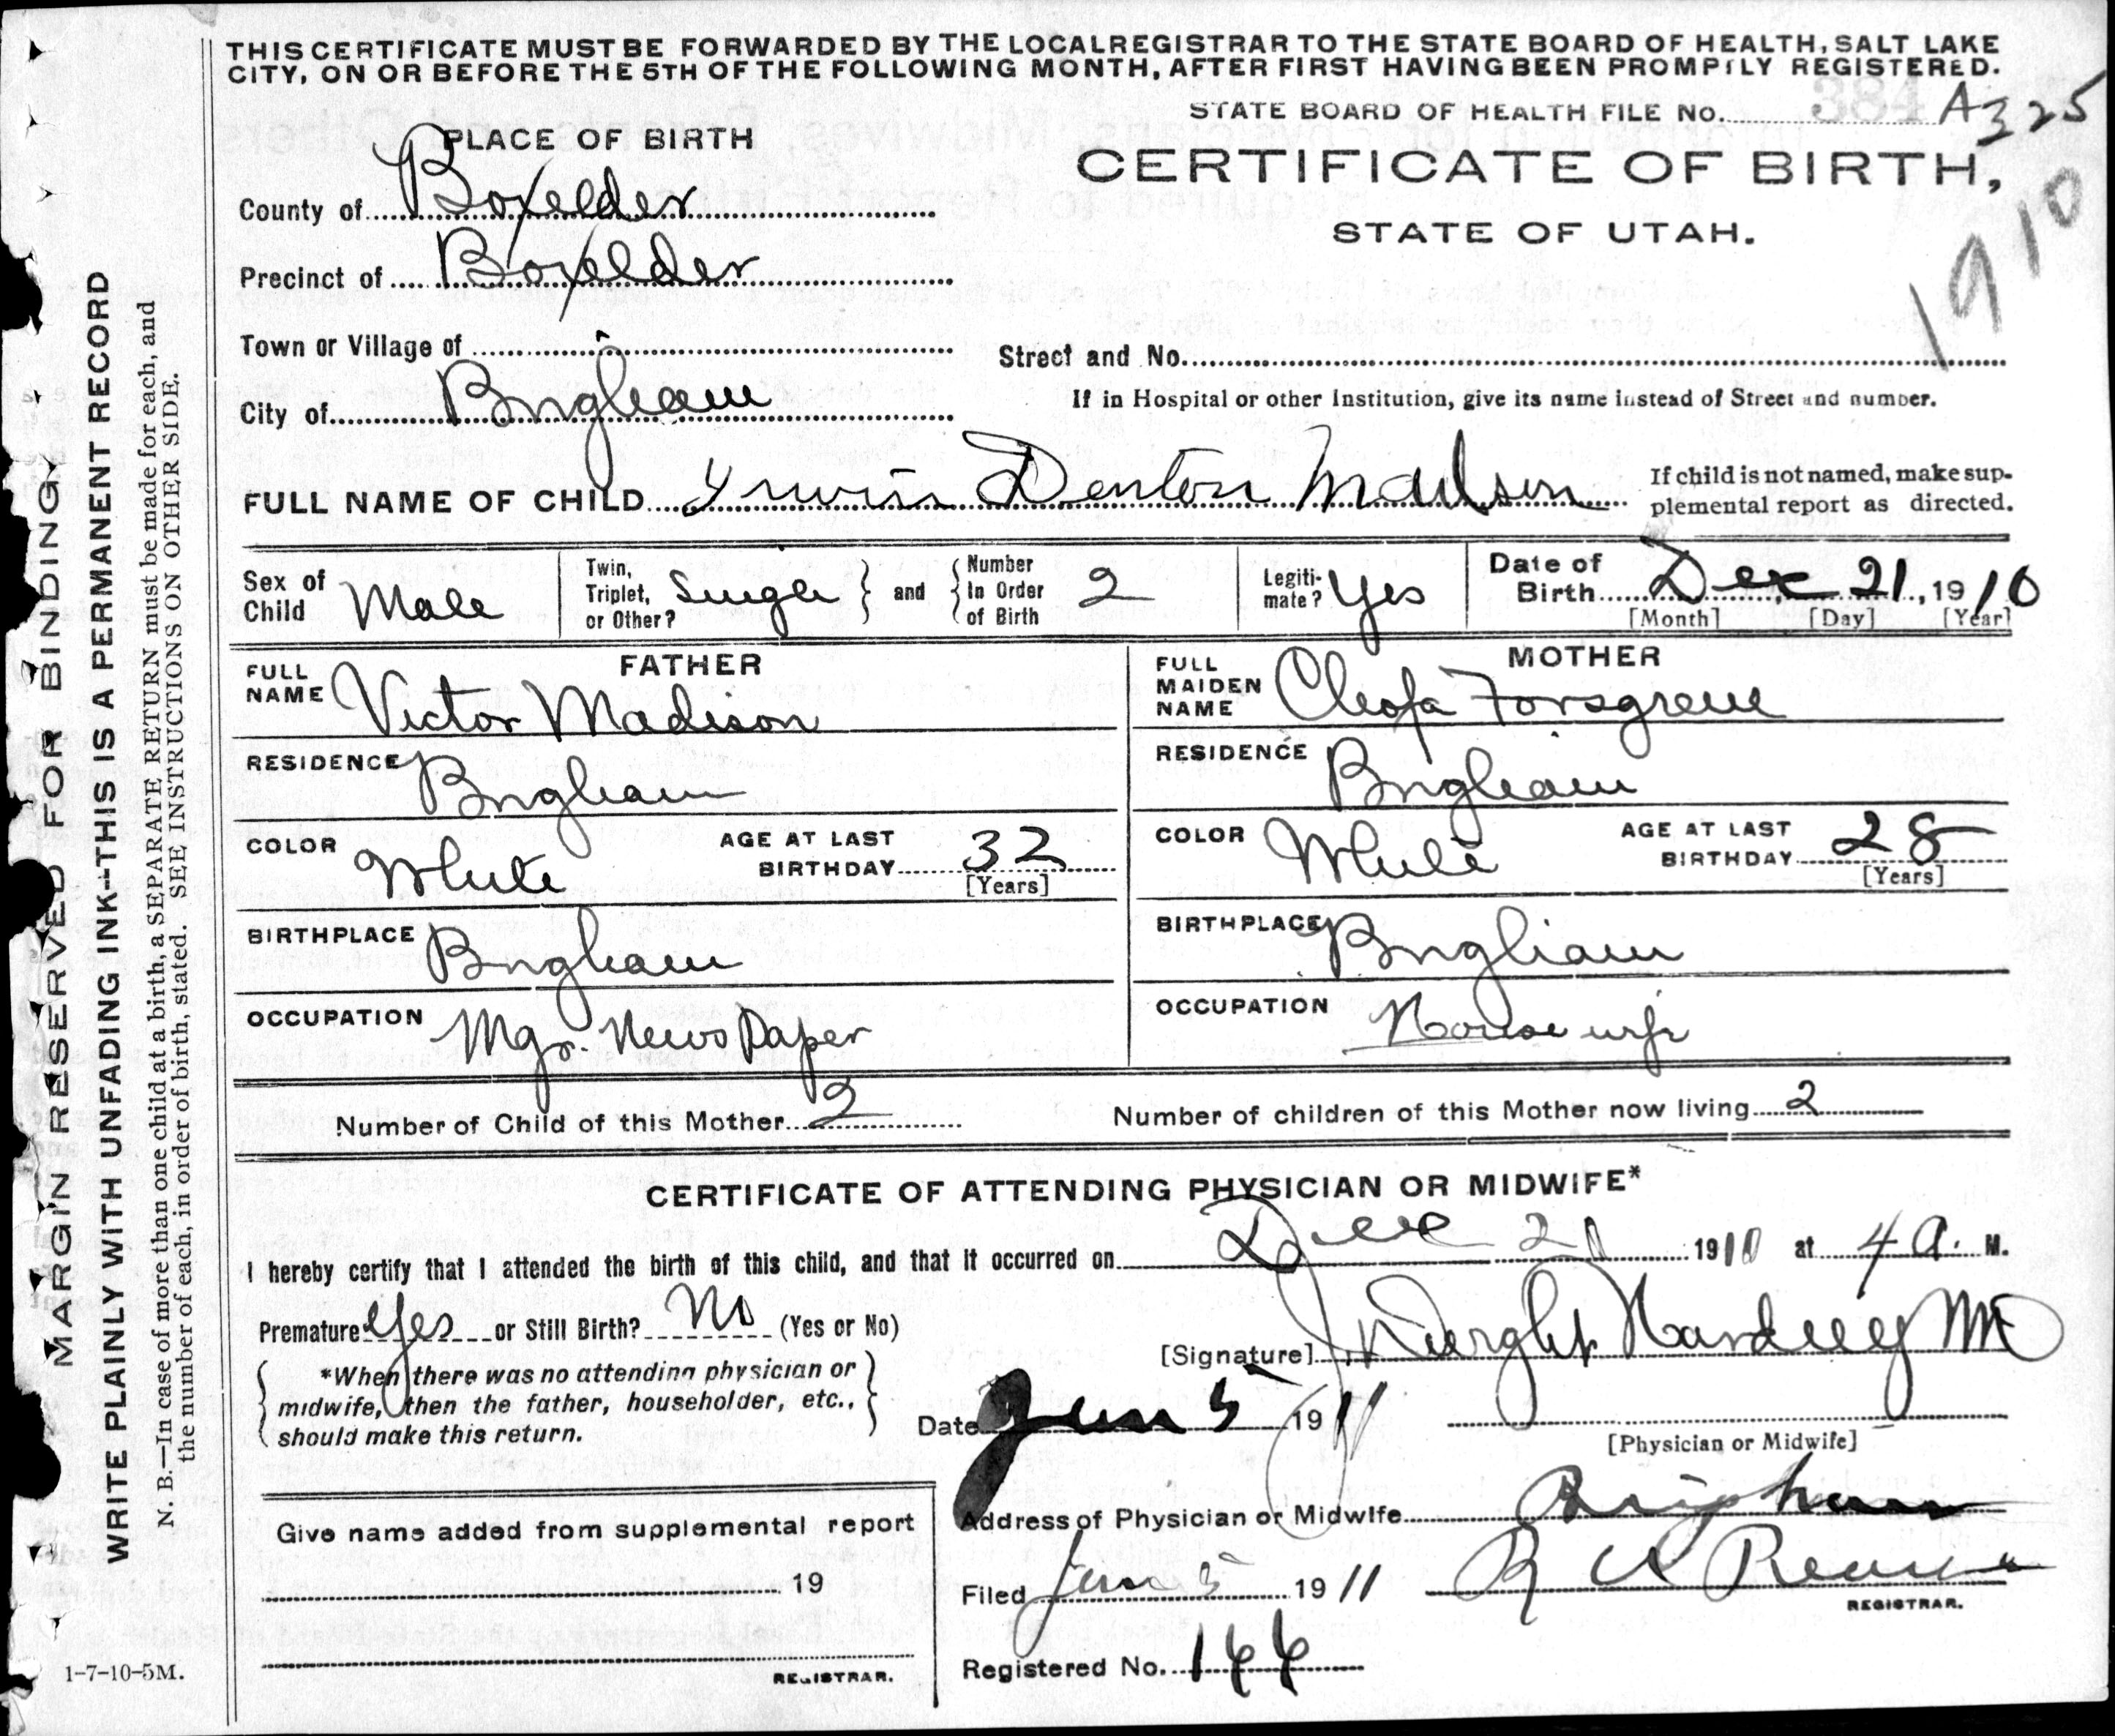 THIS CERTIFICATE MUST BE FORWARDED BY THE LOCAL REGISTRAR TO THE STATE BOARD OF HEALTH, SALT LAKE
CITY, ON OR BEFORE THE 5TH OF THE FOLLOWING MONTH, AFTER FIRST HAVING BEEN PROMPTLY REGISTERED.
STATE BOARD OF HEALTH FILE NO. 384 A325
PLACE OF BIRTH
CERTIFICATE OF BIRTH,
STATE OF UTAH.
1910
County of Boxelder
Precinct of Boxelder
Town or Village of
Street and No.
City of Brigham
If in Hospital or other Institution, give its name instead of Street and number.
FULL NAME OF CHILD Denton Madsen
If child is not named, make sup-
plemental report as directed.
Sex of Child Male
Twin, Triplet, or Other? Single
and
Number In Order of Birth 2
Legiti-mate? Yes
Date of Birth Dec 21, 1910
[Month] [Day] [Year]
FATHER
FULL NAME Victor Madison
RESIDENCE Brigham
COLOR White
AGE AT LAST BIRTHDAY 32
[Years]
BIRTHPLACE Brigham
OCCUPATION Mgr. News Paper
MOTHER
FULL MAIDEN NAME Cleofa Forsgren
RESIDENCE Brigham
COLOR White
AGE AT LAST BIRTHDAY 28
[Years]
BIRTHPLACE Brigham
OCCUPATION House wife
Number of Child of this Mother 2
Number of children of this Mother now living 2
CERTIFICATE OF ATTENDING PHYSICIAN OR MIDWIFE*
I hereby certify that I attended the birth of this child, and that it occurred on Dec 21 1910 at 4 A. M.
Premature Yes or Still Birth? No (Yes or No)
[Signature] Dwight Harding MD
*When there was no attending physician or
midwife, then the father, householder, etc.,
should make this return.
Date Jan 5 1911
[Physician or Midwife]
Address of Physician or Midwife Brigham
Give name added from supplemental report
19
REGISTRAR.
Filed Jan 5 1911
REGISTRAR.
Registered No. 144
MARGIN RESERVED FOR BINDING.
WRITE PLAINLY WITH UNFADING INK—THIS IS A PERMANENT RECORD
N. B.—In case of more than one child at a birth, a SEPARATE RETURN must be made for each, and
the number of each, in order of birth, stated. SEE INSTRUCTIONS ON OTHER SIDE.
1-7-10-5M.